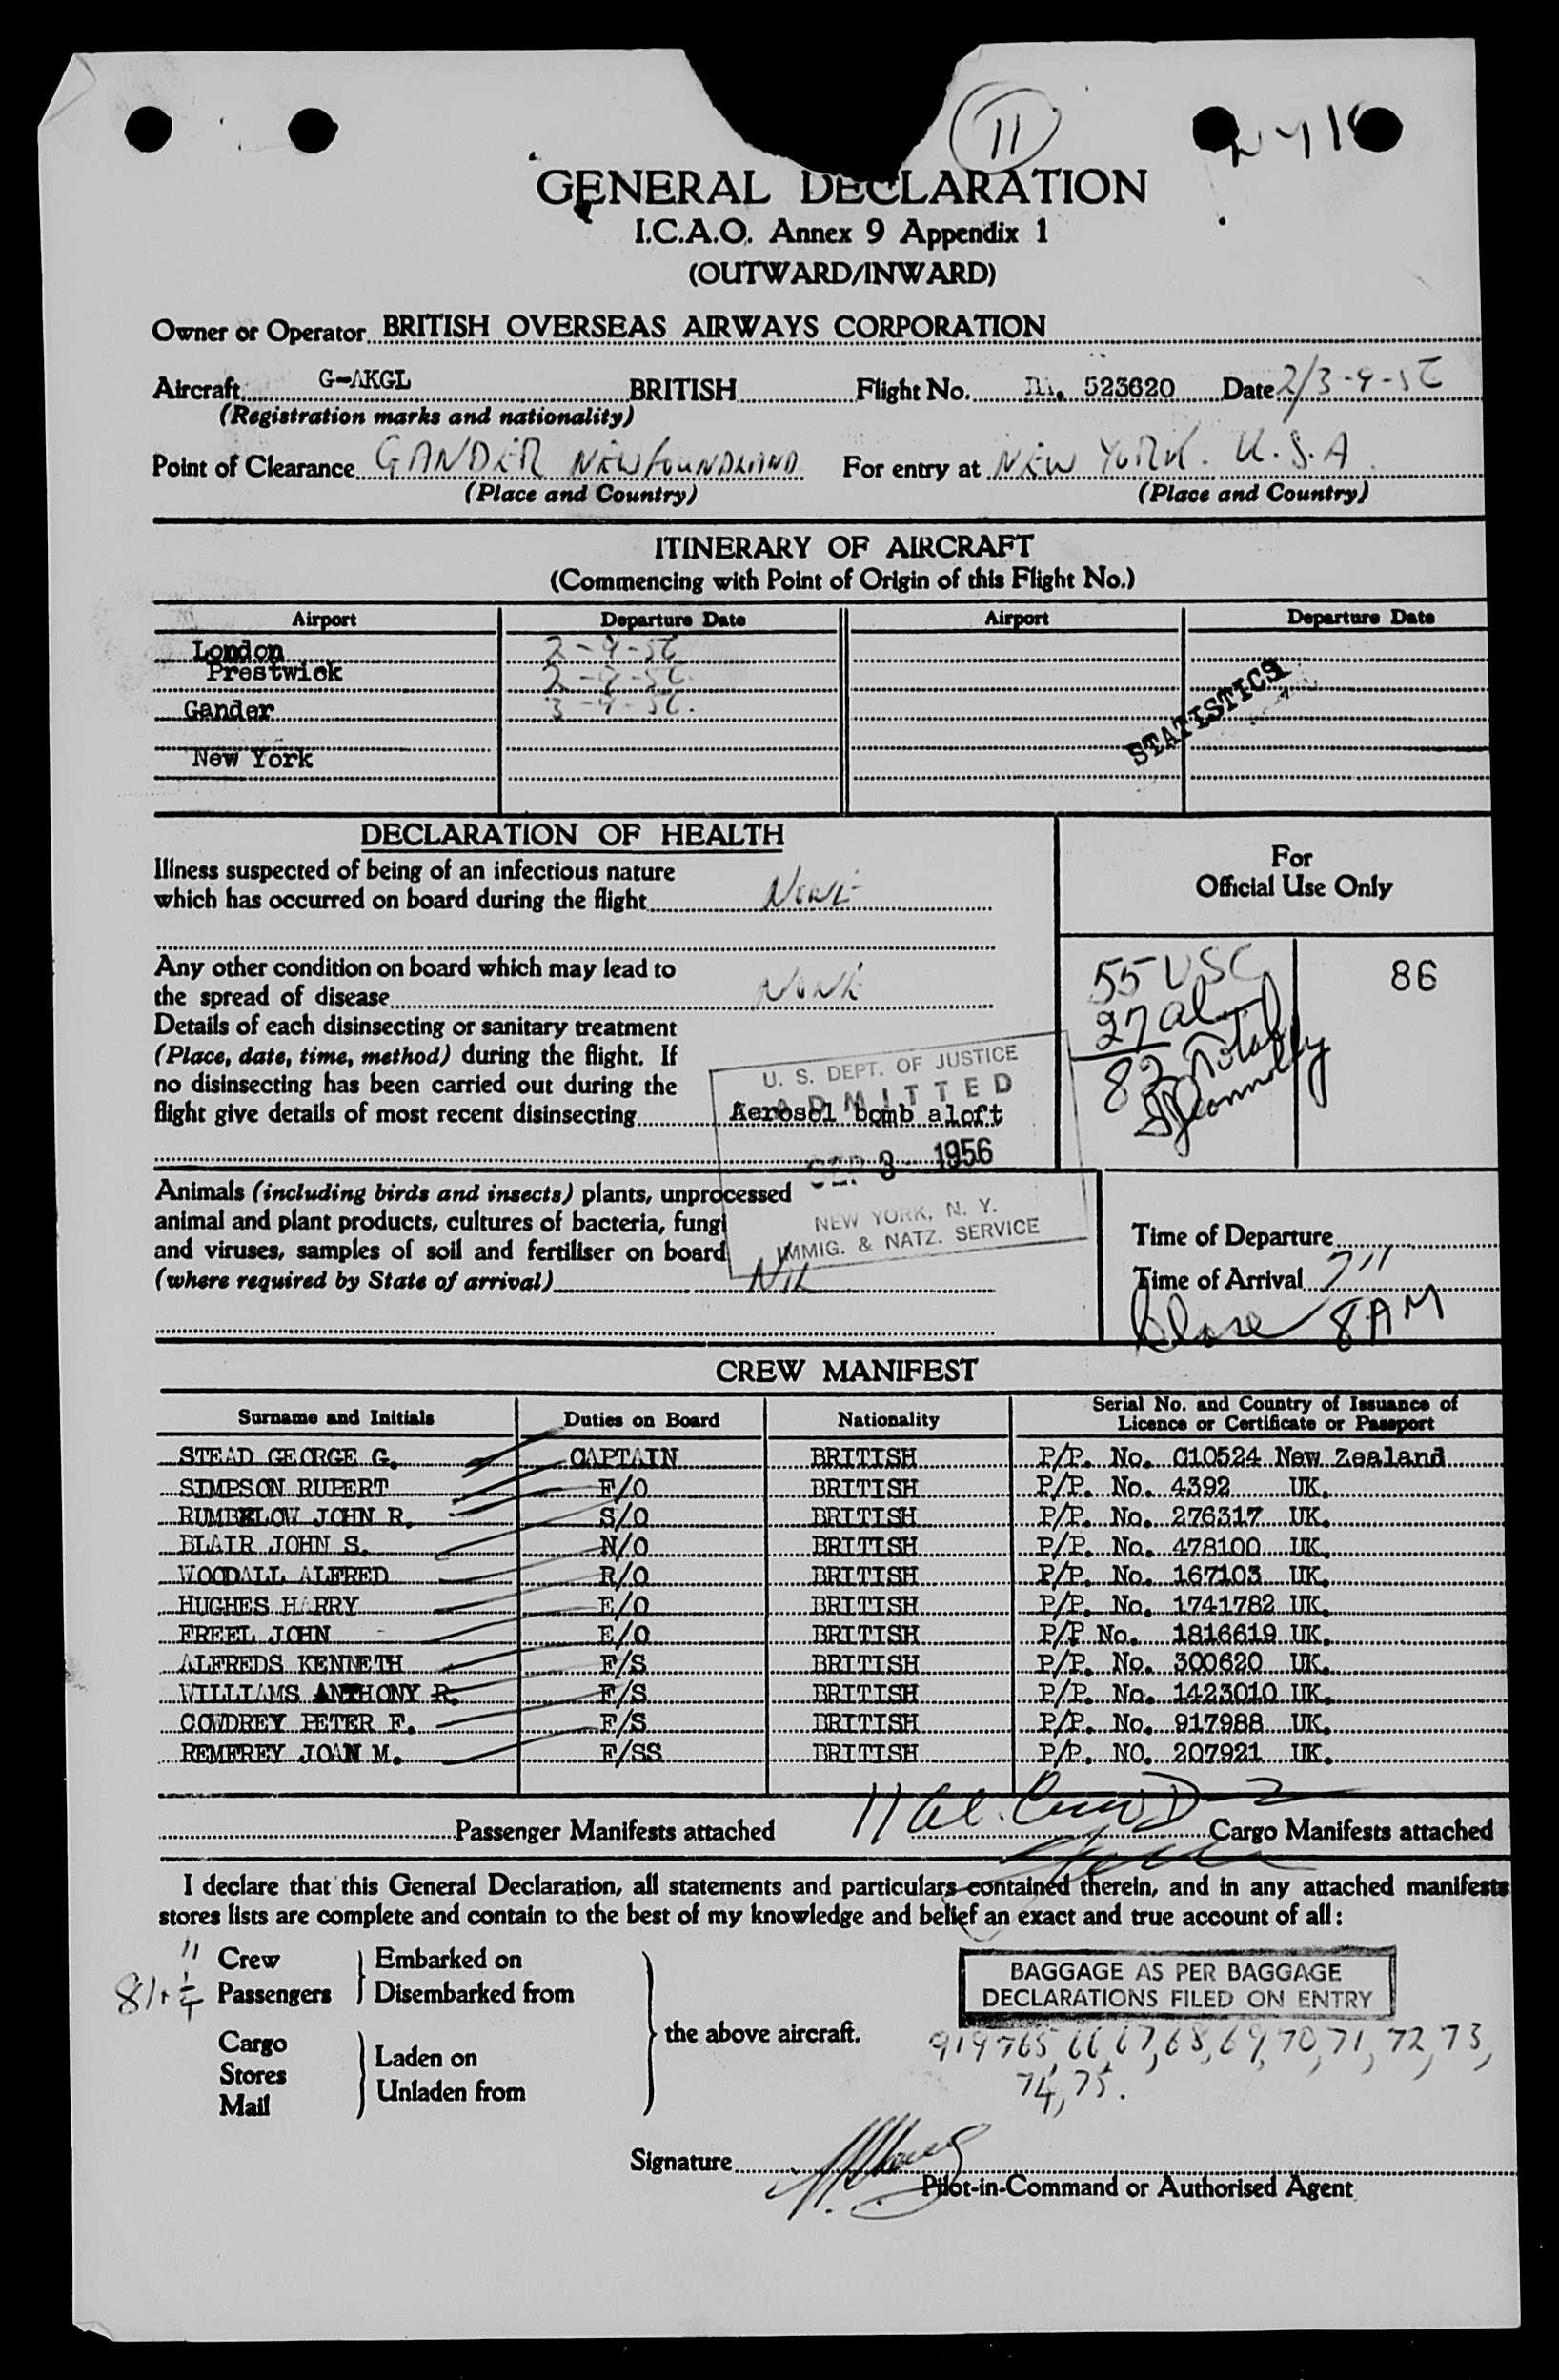 11
GENERAL DECLARATION
I.C.A.O. Annex 9 Appendix 1
(OUTWARD/INWARD)
Owner or Operator BRITISH OVERSEAS AIRWAYS CORPORATION
Aircraft G-AKGL BRITISH Flight No. BA. 523620 Date 2/3-9-56
(Registration marks and nationality)
Point of Clearance GANDER NEWFOUNDLAND For entry at NEW YORK. U.S.A.
(Place and Country) (Place and Country)
ITINERARY OF AIRCRAFT
(Commencing with Point of Origin of this Flight No.)
Airport Departure Date Airport Departure Date
London 2-9-56
Prestwick 2-9-56.
Gander 3-9-56.
New York
STATISTICS
DECLARATION OF HEALTH
For
Official Use Only
Illness suspected of being of an infectious nature
which has occurred on board during the flight NONE
Any other condition on board which may lead to
the spread of disease NONE
55 USC
27 al
82 Total
86
Details of each disinsecting or sanitary treatment
(Place, date, time, method) during the flight. If
no disinsecting has been carried out during the
flight give details of most recent disinsecting Aerosol bomb aloft
U. S. DEPT. OF JUSTICE
ADMITTED
SEP 3 1956
NEW YORK, N. Y.
IMMIG. & NATZ. SERVICE
Animals (including birds and insects) plants, unprocessed
animal and plant products, cultures of bacteria, fungi
and viruses, samples of soil and fertiliser on board
(where required by State of arrival) NIL
Time of Departure
Time of Arrival 711
Close 8 AM
CREW MANIFEST
Surname and Initials Duties on Board Nationality Serial No. and Country of Issuance of Licence or Certificate or Passport
STEAD GEORGE G. CAPTAIN BRITISH P/P. No. C10524 New Zealand
SIMPSON RUPERT F/O BRITISH P/P. No. 4392 UK.
RUMBELOW JOHN R. S/O BRITISH P/P. No. 276317 UK.
BLAIR JOHN S. N/O BRITISH P/P. No. 478100 UK.
WOODALL ALFRED R/O BRITISH P/P. No. 167103 UK.
HUGHES HARRY E/O BRITISH P/P. No. 1741782 UK.
FREEL JOHN E/O BRITISH P/P No. 1816619 UK.
ALFREDS KENNETH F/S BRITISH P/P. No. 300620 UK.
WILLIAMS ANTHONY R. F/S BRITISH P/P. No. 1423010 UK.
COWDREY PETER F. F/S BRITISH P/P. No. 917988 UK.
REMFREY JOAN M. F/SS BRITISH P/P. NO. 207921 UK.
11 al. Crew
Passenger Manifests attached Cargo Manifests attached
I declare that this General Declaration, all statements and particulars contained therein, and in any attached manifests
stores lists are complete and contain to the best of my knowledge and belief an exact and true account of all:
11 Crew Embarked on
81+ Passengers Disembarked from
the above aircraft.
Cargo
Stores
Mail
Laden on
Unladen from
BAGGAGE AS PER BAGGAGE
DECLARATIONS FILED ON ENTRY
919765, 66, 67, 68, 69, 70, 71, 72, 73,
74, 75.
Signature
Pilot-in-Command or Authorised Agent